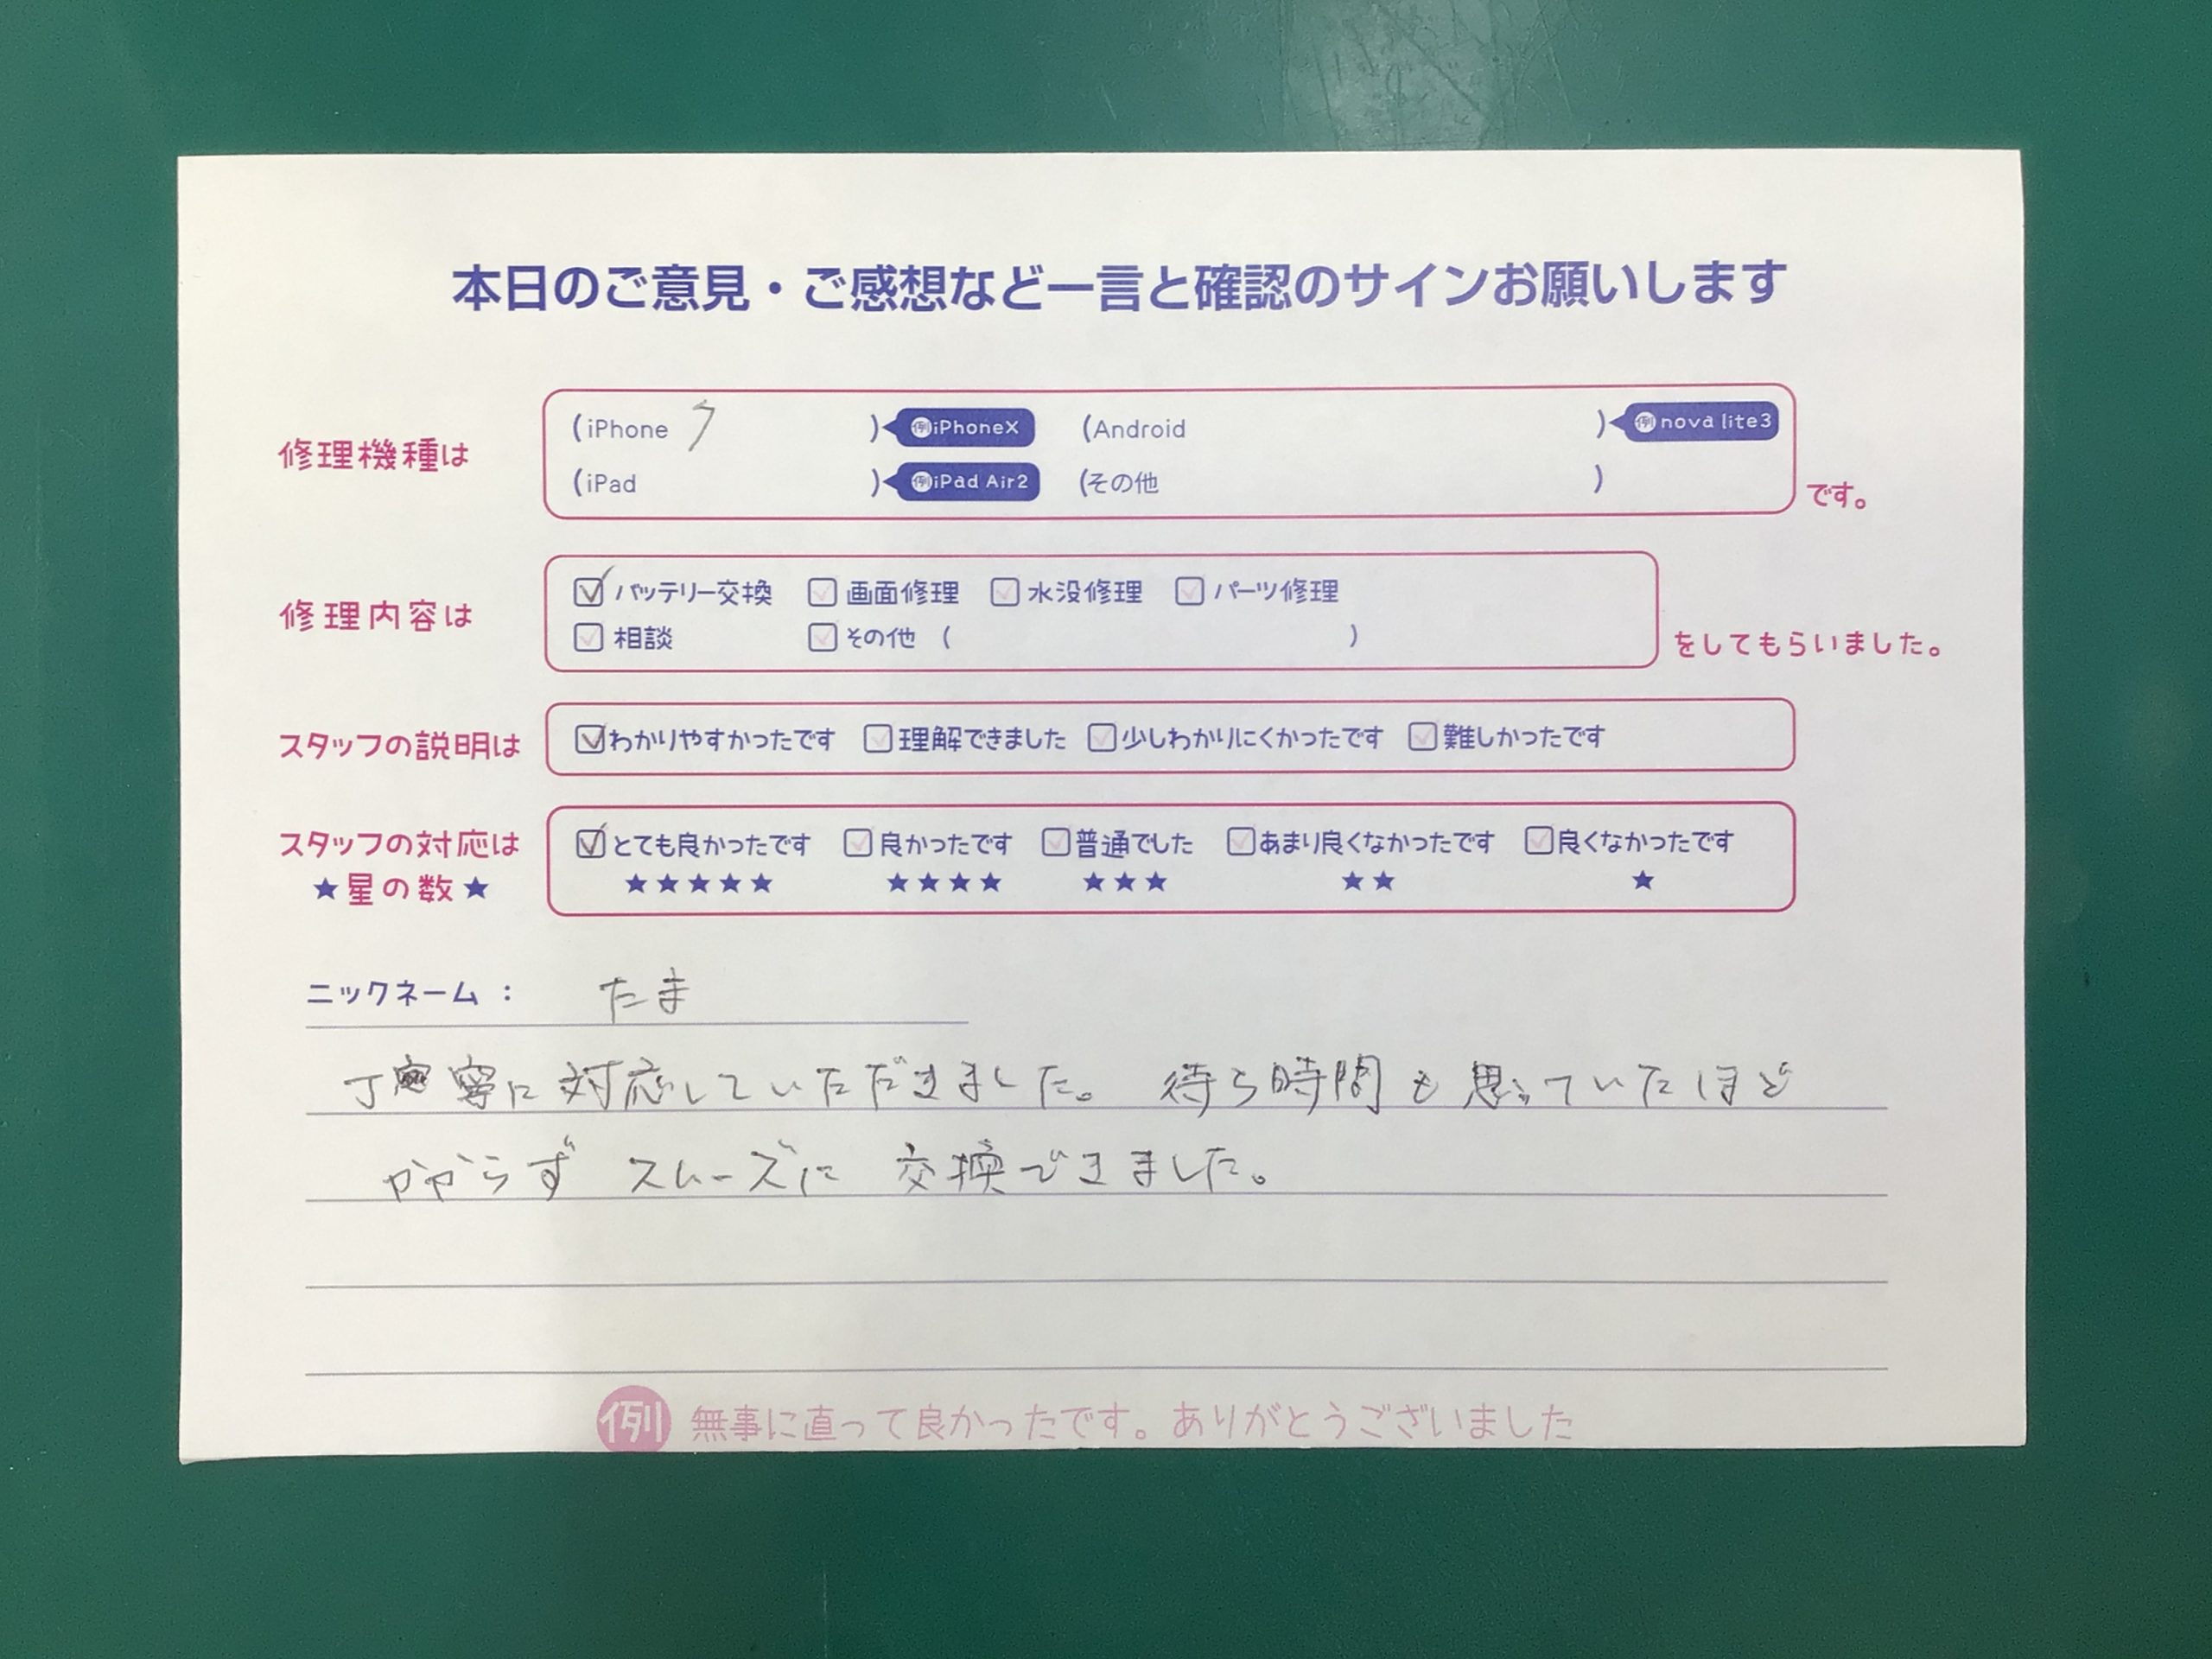 本日のご意見・ご感想など一言と確認のサインお願いします
修理機種は (iPhone 7 ) 例iPhoneX (Android ) 例nova lite3
(iPad ) 例iPad Air2 (その他 ) です。
修理内容は ☑バッテリー交換 □画面修理 □水没修理 □パーツ修理
□相談 □その他 ( ) をしてもらいました。
スタッフの説明は ☑わかりやすかったです □理解できました □少しわかりにくかったです □難しかったです
スタッフの対応は ☑とても良かったです □良かったです □普通でした □あまり良くなかったです □良くなかったです
★星の数★ ★★★★★ ★★★★ ★★★ ★★ ★
ニックネーム : たま
丁寧に対応していただきました。 待ち時間も思っていたほど
かからず スムーズに 交換できました。
例 無事に直って良かったです。ありがとうございました